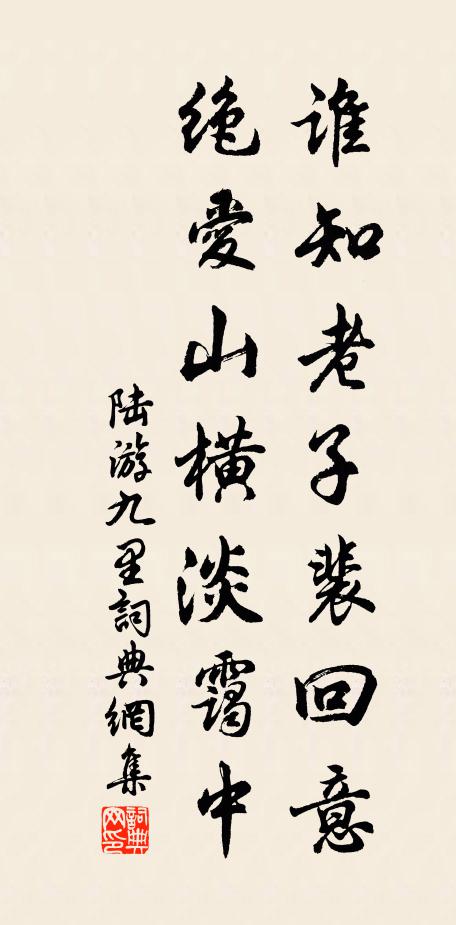 谁知老子裴回意
绝爱山横淡霭中
陆游九里詞典網集
詞典网印